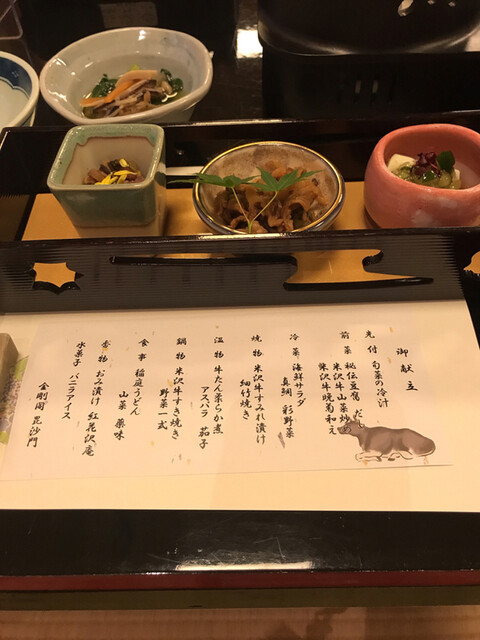 御献立
先付 旬菜の冷汁
前菜 秘伝豆腐 だし
米沢牛山菜炒め
米沢牛晩菊和え
冷菜 海鮮サラダ
真鯛 彩野菜
焼物 米沢牛すみれ漬け
細竹焼き
温物 牛たん柔らか煮
アスパラ 茄子
鍋物 米沢牛すき焼き
野菜一式
食事 稲庭うどん
山菜 薬味
香物 おみ漬け 紅花沢庵
水菓子 バニラアイス
金剛閣 毘沙門